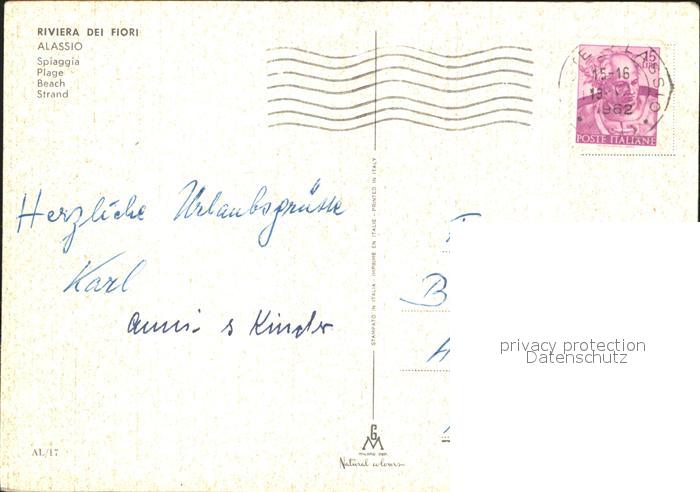 RIVIERA DEI FIORI
ALASSIO
Spiaggia
Plage
Beach
Strand
15
LIRE
15-16
1962
POSTE ITALIANE
Herzliche Urlaubsgrüsse
Karl
Anni. s Kinder
STAMPATO IN ITALIA - IMPRIMÉ EN ITALIE - PRINTED IN ITALY
B
privacy protection
Datenschutz
AL/17
GM
MILANO DEP.
Natural colours